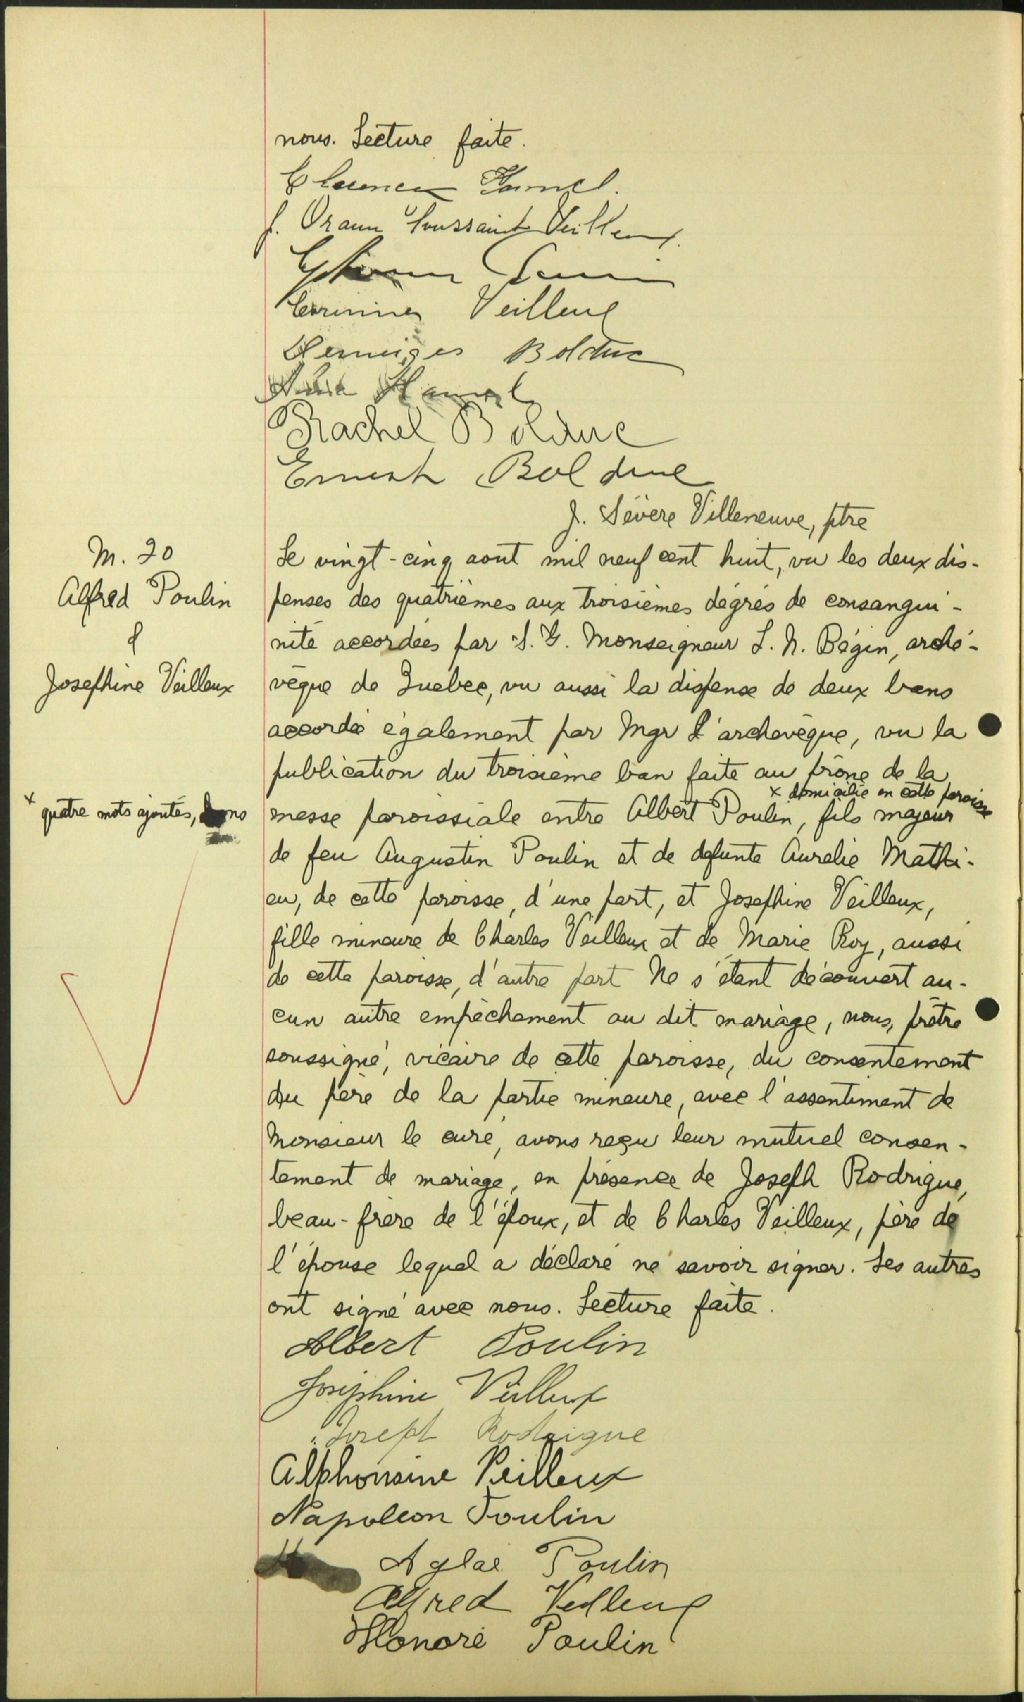 nous. Lecture faite.
J. Toussaint Veilleux
Corinne Veilleux
Bolduc
Hamel
Rachel Bolduc
Ernest Bolduc
J. Sévère Villeneuve, ptre
M. 20
Alfred Poulin
&
Josephine Veilleux
Le vingt-cinq aout mil neuf cent huit, vu les deux dis-
penses des quatrièmes aux troisièmes dégrés de consangui-
nité accordées par S. G. Monseigneur L. N. Bégin, arché-
vêque de Quebec, vu aussi la dispense de deux bans
accordée également par Mgr l'archevêque, vu la
publication du troisième ban faite au prône de la
x domicilié en cette paroisse
x quatre mots ajoutés, bons
messe paroissiale entre Albert Poulin, fils majeur
de feu Augustin Poulin et de defunte Aurelie Mathi-
eu, de cette paroisse, d'une part, et Josephine Veilleux,
fille mineure de Charles Veilleux et de Marie Roy, aussi
de cette paroisse, d'autre part Ne s'étant découvert au-
cun autre empêchement au dit mariage, nous, prêtre
soussigné, vicaire de cette paroisse, du consentement
du père de la partie mineure, avec l'assentiment de
Monsieur le curé, avons reçu leur mutuel consen-
tement de mariage, en présence de Joseph Rodrigue,
beau-frère de l'époux, et de Charles Veilleux, père de
l'épouse lequel a déclaré ne savoir signer. Les autres
ont signé avec nous. Lecture faite.
Albert Poulin
Joséphine Veilleux
Joseph Rodrigue
Alphonsine Veilleux
Napoléon Poulin
Aglaé Poulin
Alfred Veilleux
Honoré Poulin